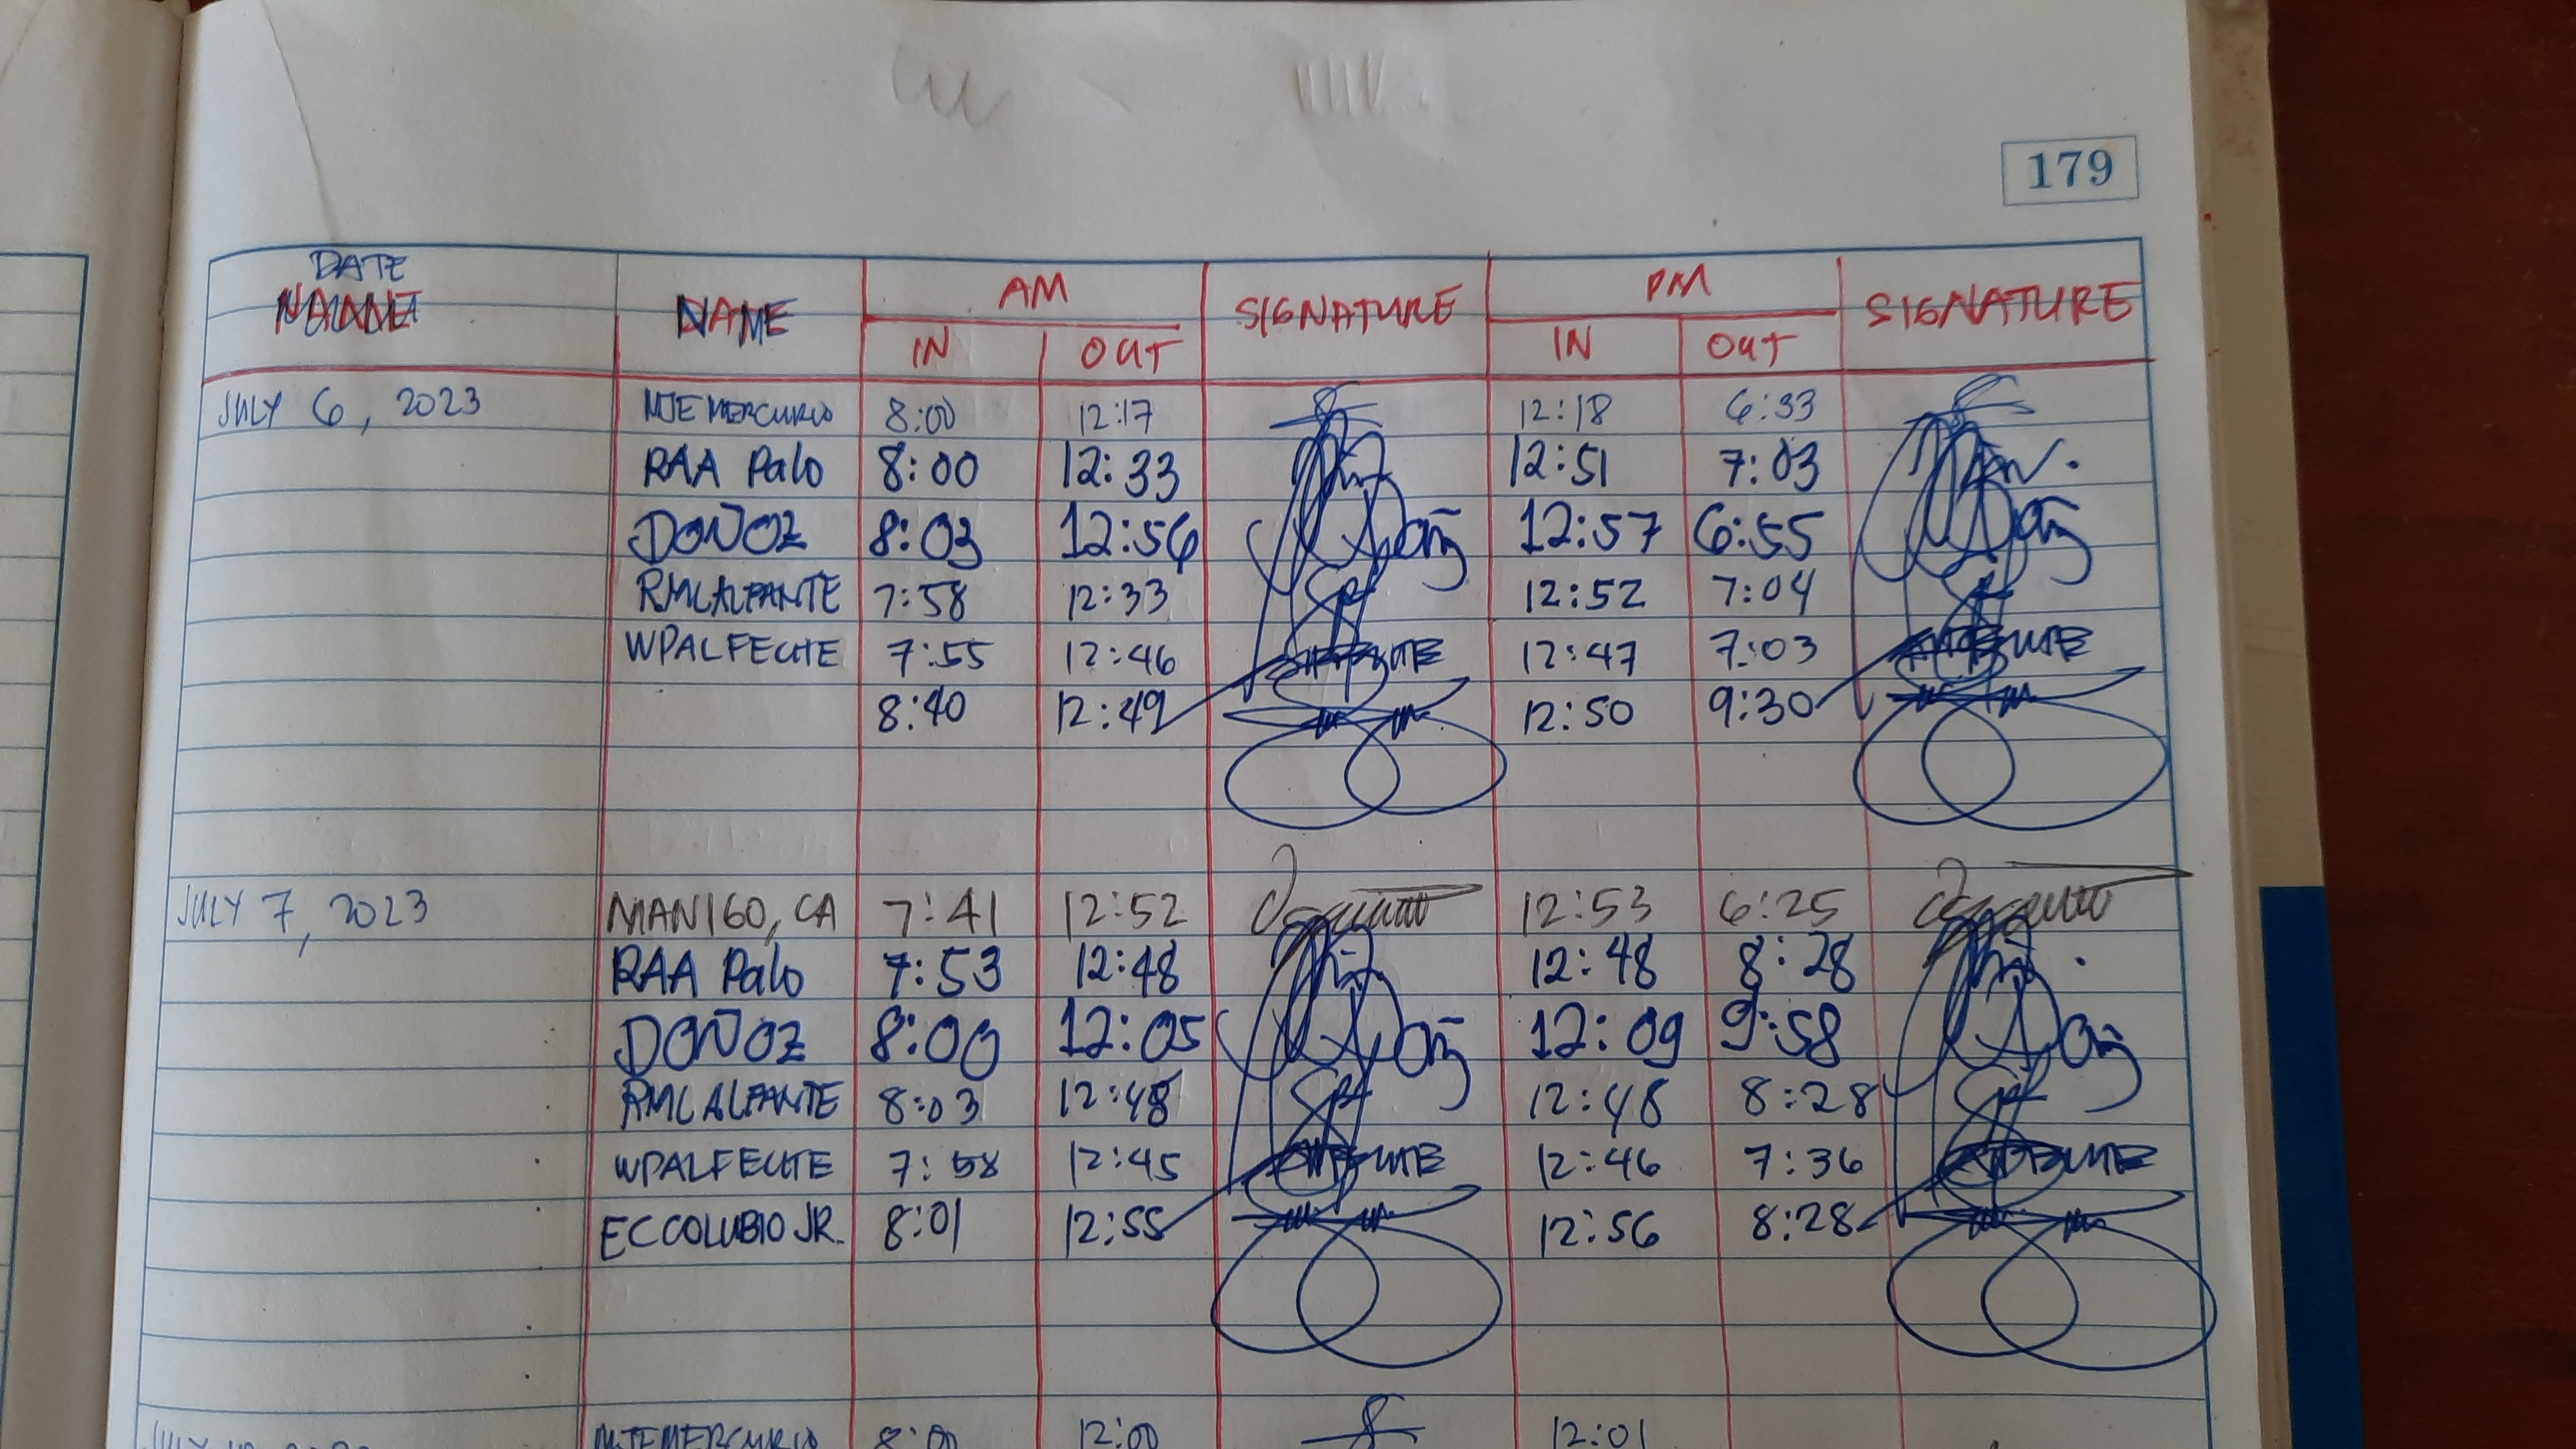 179
DATE
NAME AM SIGNATURE PM SIGNATURE
IN OUT IN OUT
JULY 6, 2023 MJEMERCURIO 8:00 12:17 12:18 6:33
RAA Palo 8:00 12:33 12:51 7:03
DOÑOZ 8:03 12:56 12:57 6:55
RMCALFANTE 7:58 12:33 12:52 7:04
WPALFECHE 7:55 12:46 12:47 7:03
8:40 12:49 12:50 9:30
JULY 7, 2023 MANIGO, CA 7:41 12:52 12:53 6:25
RAA Palo 7:53 12:48 12:48 8:28
DOÑOZ 8:00 12:05 12:09 9:58
RMCALFANTE 8:03 12:48 12:48 8:28
WPALFECHE 7:58 12:45 12:46 7:36
ECCOLUBIO JR. 8:01 12:55 12:56 8:28
MJEMERCURIO 8:00 12:00 12:01